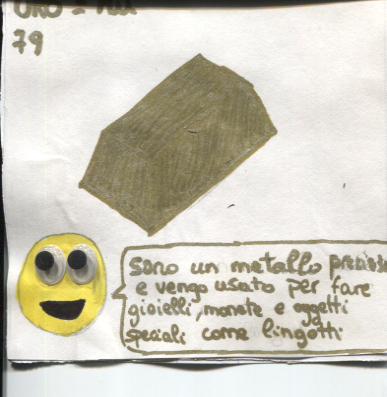 ORO = Au
79
Sono un metallo prezioso
e vengo usato per fare
gioielli, monete e oggetti
speciali come lingotti